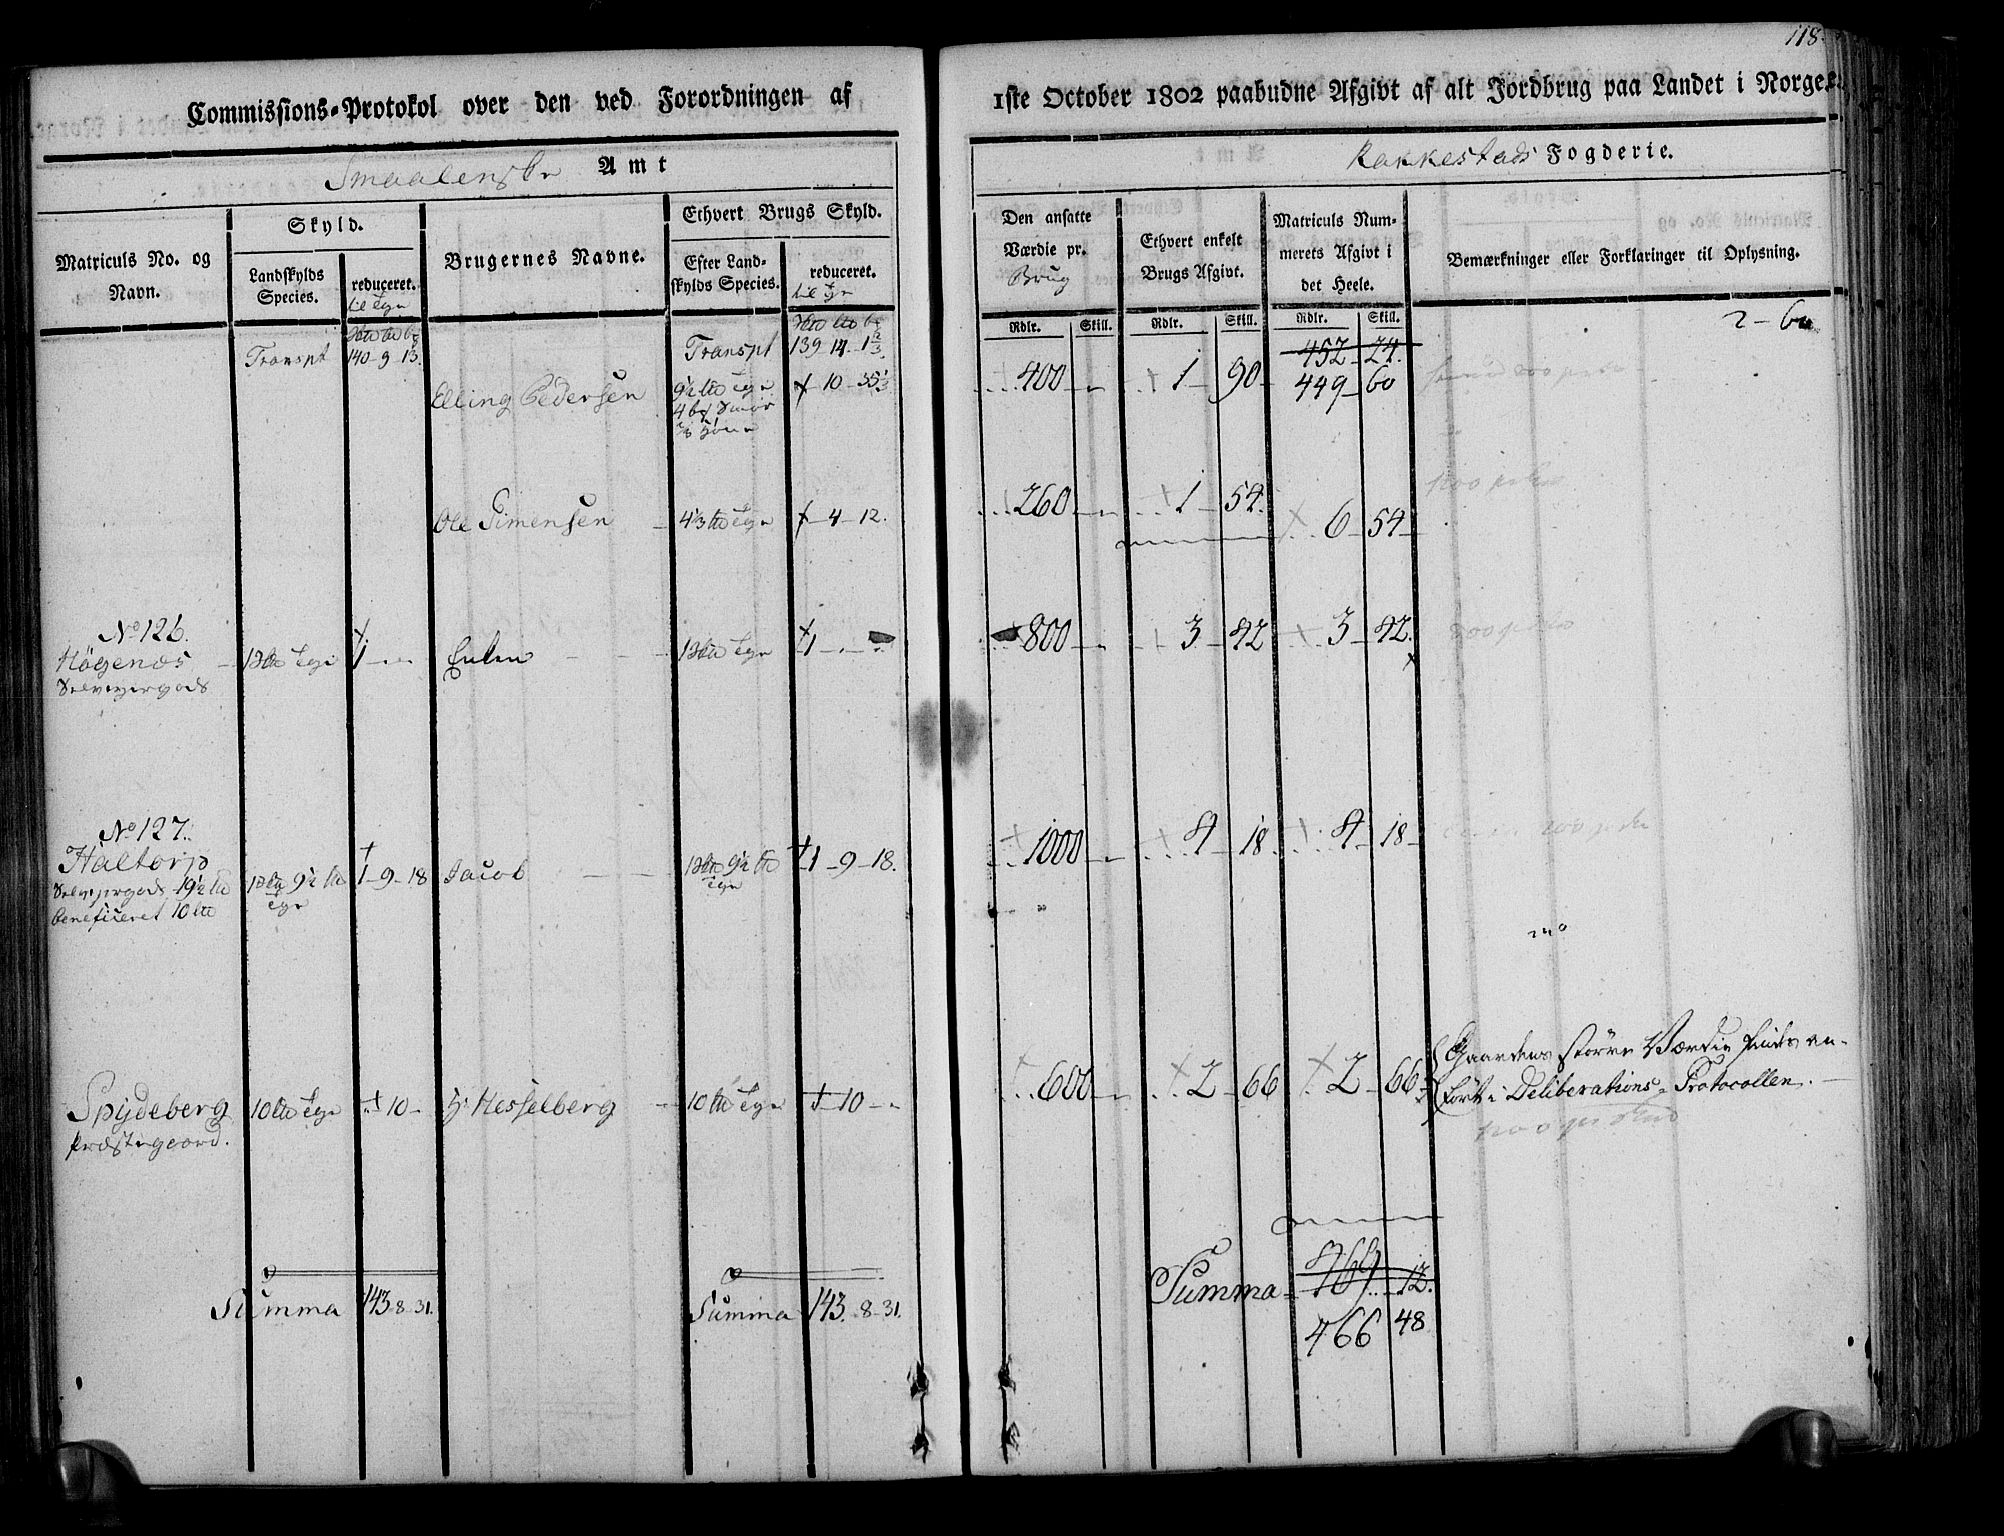 118.
Commissions-Protokol over den ved Forordningen af
1ste October 1802 paabudne Afgivt af alt Jordbrug paa Landet i Norge, &c.
Smaalenske Amt
Rakkestads Fogderie.
Matriculs No. og Navn.
Skyld.
Landskylds Species.
reduceret.
til Tyn
Brugernes Navne.
Ethvert Brugs Skyld.
Efter Landskylds Species.
reduceret.
til Tyn
Den ansatte Værdie pr.
Brug
Ethvert enkelt Brugs Afgivt.
Matriculs Nummerets Afgivt i det Heele.
Bemærkninger eller Forklaringer til Oplysning.
Rdlr. Skill. Rdlr. Skill. Rdlr. Skill.
Transpt 140 - 9 - 13. Transpt 139 14 - 1 2/3 452 - 24. 2 - 60
449 60
Elling Pedersen 9½ - 10 - 35⅓ 400 1 - 90
4 Smør
Ole Simensen - 4⅓ - 4 - 12. 260 1 - 54. 6 - 54
No 126.
Högenæs 1 Enken 1 800 3 - 42 3 - 42.
Selveyergods
No 127.
Haltorp 1 9½ 1 - 9 - 18 Jacob 1 9½ 1 - 9 - 18. 1000 4 - 18 4 - 18
Selveyergods 19½
beneficeret 10
Spydeberg 10 10 - Hr Hesselberg 10 10 600 2 - 66 2 - 66 Gaardens större Værdie findes an-
Præstegaard. fört i Deliberations-Protocollen.
Summa 143 - 8 - 31. Summa 143. - 8 - 31. Summa 469. - 12.
466 48